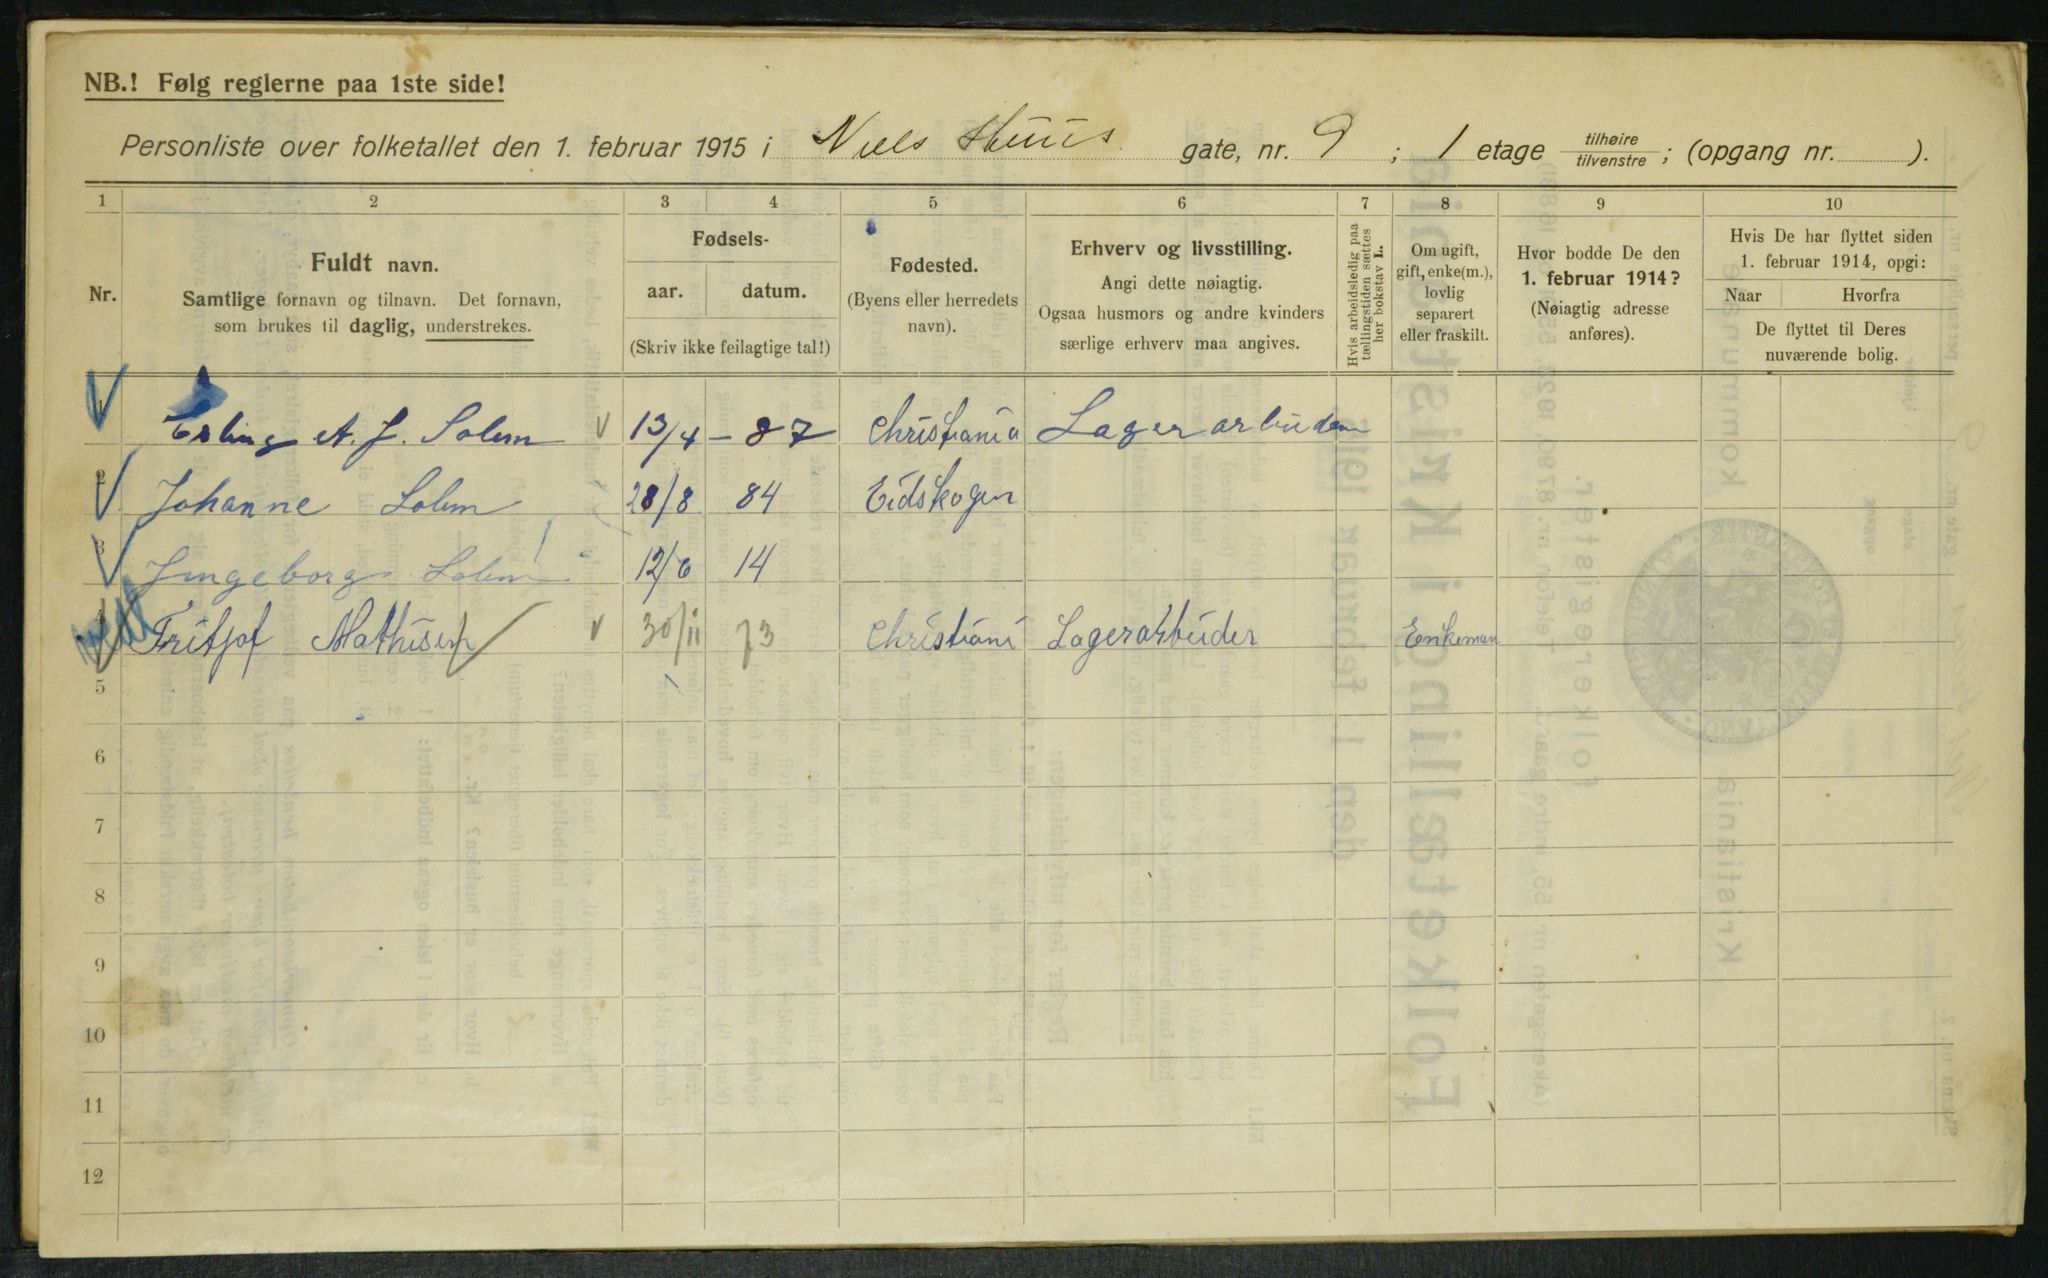 NB.! Følg reglerne paa 1ste side!
Personliste over folketallet den 1. februar 1915 i Niels Huus gate, nr. 9 ; 1 etage tilhøire tilvenstre ; (opgang nr. ).
1 2 3 4 5 6 7 8 9 10
Nr.
Fuldt navn.
Samtlige fornavn og tilnavn. Det fornavn,
som brukes til daglig, understrekes.
Fødsels-
aar. datum.
(Skriv ikke feilagtige tal!)
Fødested.
(Byens eller herredets
navn).
Erhverv og livsstilling.
Angi dette nøiagtig.
Ogsaa husmors og andre kvinders
særlige erhverv maa angives.
Hvis arbeidsledig paa
tællingstiden sættes
her bokstav L.
Om ugift,
gift, enke(m.),
lovlig
separert
eller fraskilt.
Hvor bodde De den
1. februar 1914?
(Nøiagtig adresse
anføres).
Hvis De har flyttet siden
1. februar 1914, opgi:
Naar Hvorfra
De flyttet til Deres
nuværende bolig.
1 Erling A. J. Solem 13/4 - 87 Christiania Lagerarbuider
2 Johanne Solem 28/8 84 Eidskogen
3 Jngeborg Solem 12/6 14
4 Fritjof Mathisen 30/11 73 Christiani Lagerarbeider Enkeman
5
6
7
8
9
10
11
12